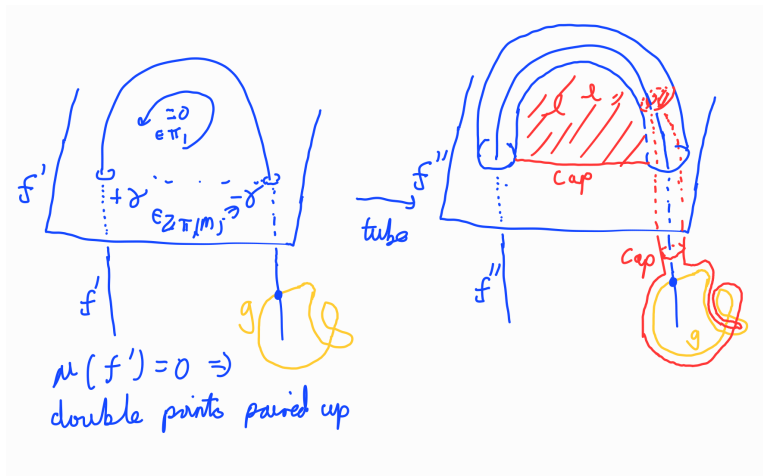 =0
∈ π₁
+γ
-γ
∈ Zπ₁(M)
f'
f'
g
μ(f')=0 ⇒
double points paired up
tube
cap
f''
f''
cap
g